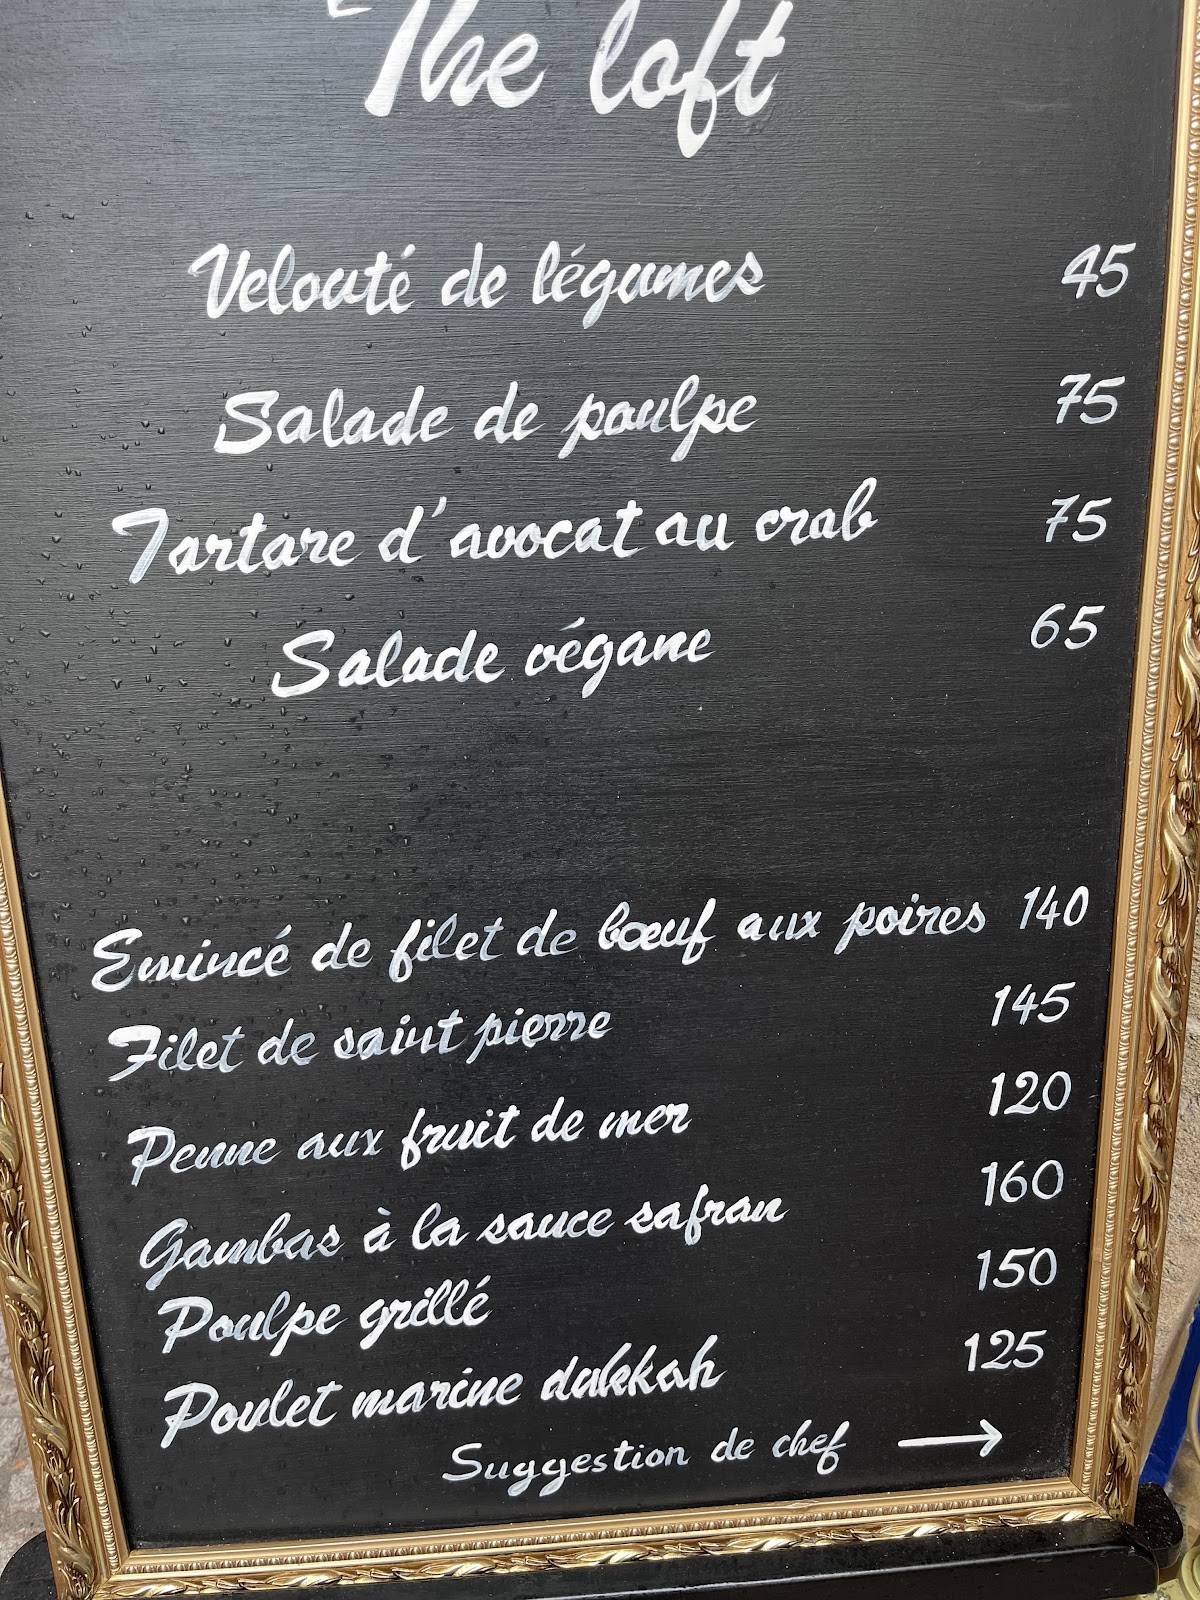 The loft
Velouté de légumes 45
Salade de poulpe 75
Tartare d'avocat au crab 75
Salade végane 65
Emincé de filet de bœuf aux poires 140
Filet de saint pierre 145
Penne aux fruit de mer 120
Gambas à la sauce safran 160
Poulpe grillé 150
Poulet marine dukkah 125
Suggestion de chef →